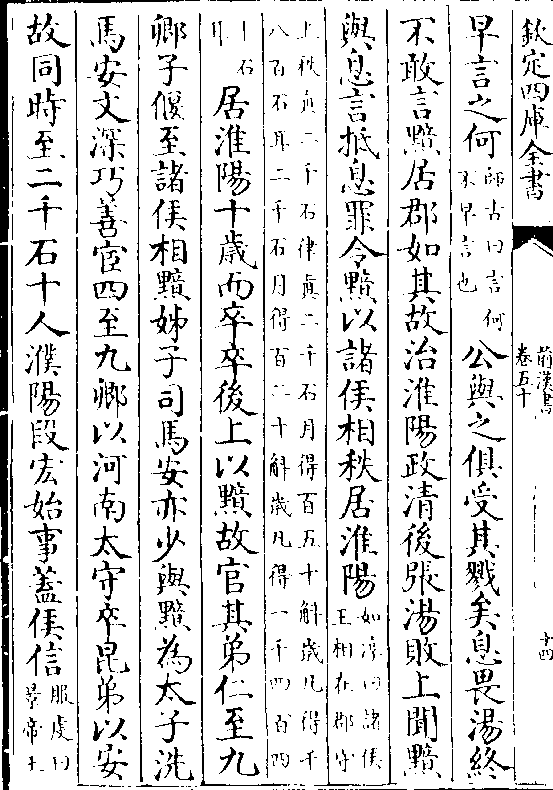 欽定四庫全書
前漢書
卷五十
十四
早言之何師古曰言何不早言也公與之俱受其戮矣息畏湯終
不敢言黯居郡如其故治淮陽政清後張湯敗上聞黯
與息言抵息罪令黯以諸侯相秩居淮陽如淳曰諸侯王相在郡守
上秩真二千石律真二千石月得百五十斛歲凡得千八百石耳二千石月得百二十斛歲凡得一千四百四
十石耳居淮陽十歲而卒卒後上以黯故官其弟仁至九
卿子偃至諸侯相黯姊子司馬安亦少與黯為太子洗
馬安文深巧善宦四至九卿以河南太守卒昆弟以安
故同時至二千石十人濮陽段宏始事蓋侯信服虔曰景帝王